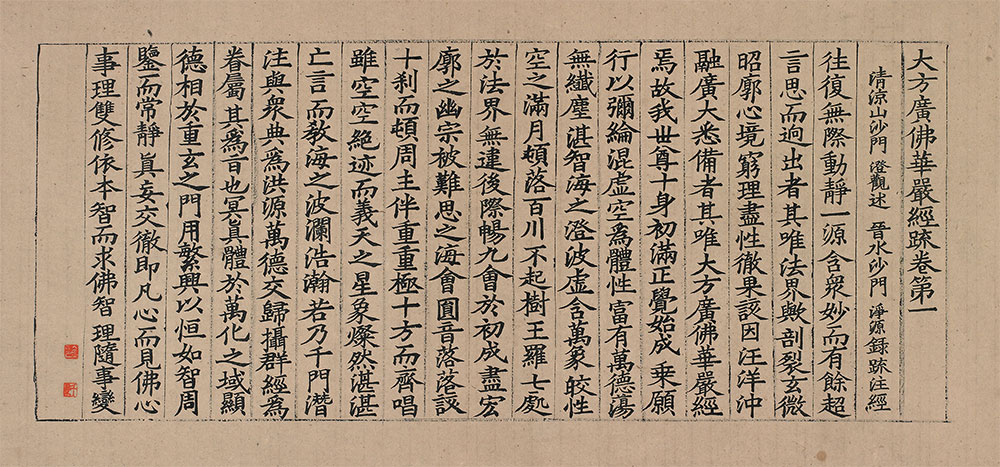 大方廣佛華嚴經疏卷第一
清涼山沙門 澄觀述 晉水沙門 淨源録疏注經
往復無際動靜一源含衆妙而有餘超
言思而逈出者其唯法界歟剖裂玄微
昭廓心境窮理盡性徹果該因汪洋沖
融廣大悉備者其唯大方廣佛華嚴經
焉故我世尊十身初滿正覺始成乗願
行以彌綸混虛空爲體性富有萬德蕩
無纖塵湛智海之澄波虛含萬象皎性
空之滿月頓落百川不起樹王羅七處
於法界無違後際暢九會於初成盡宏
廓之幽宗被難思之海會圓音落落該
十刹而頓周主伴重重極十方而齊唱
雖空空絶迹而義天之星象燦然湛湛
亡言而敎海之波瀾浩瀚若乃千門潛
注與衆典爲洪源萬德交歸攝群經爲
眷屬其爲旨也冥眞體於萬化之域顯
德相於重玄之門用繁興以恒如智周
鑒而常靜眞妄交徹即凡心而見佛心
事理雙修依本智而求佛智理隨事變